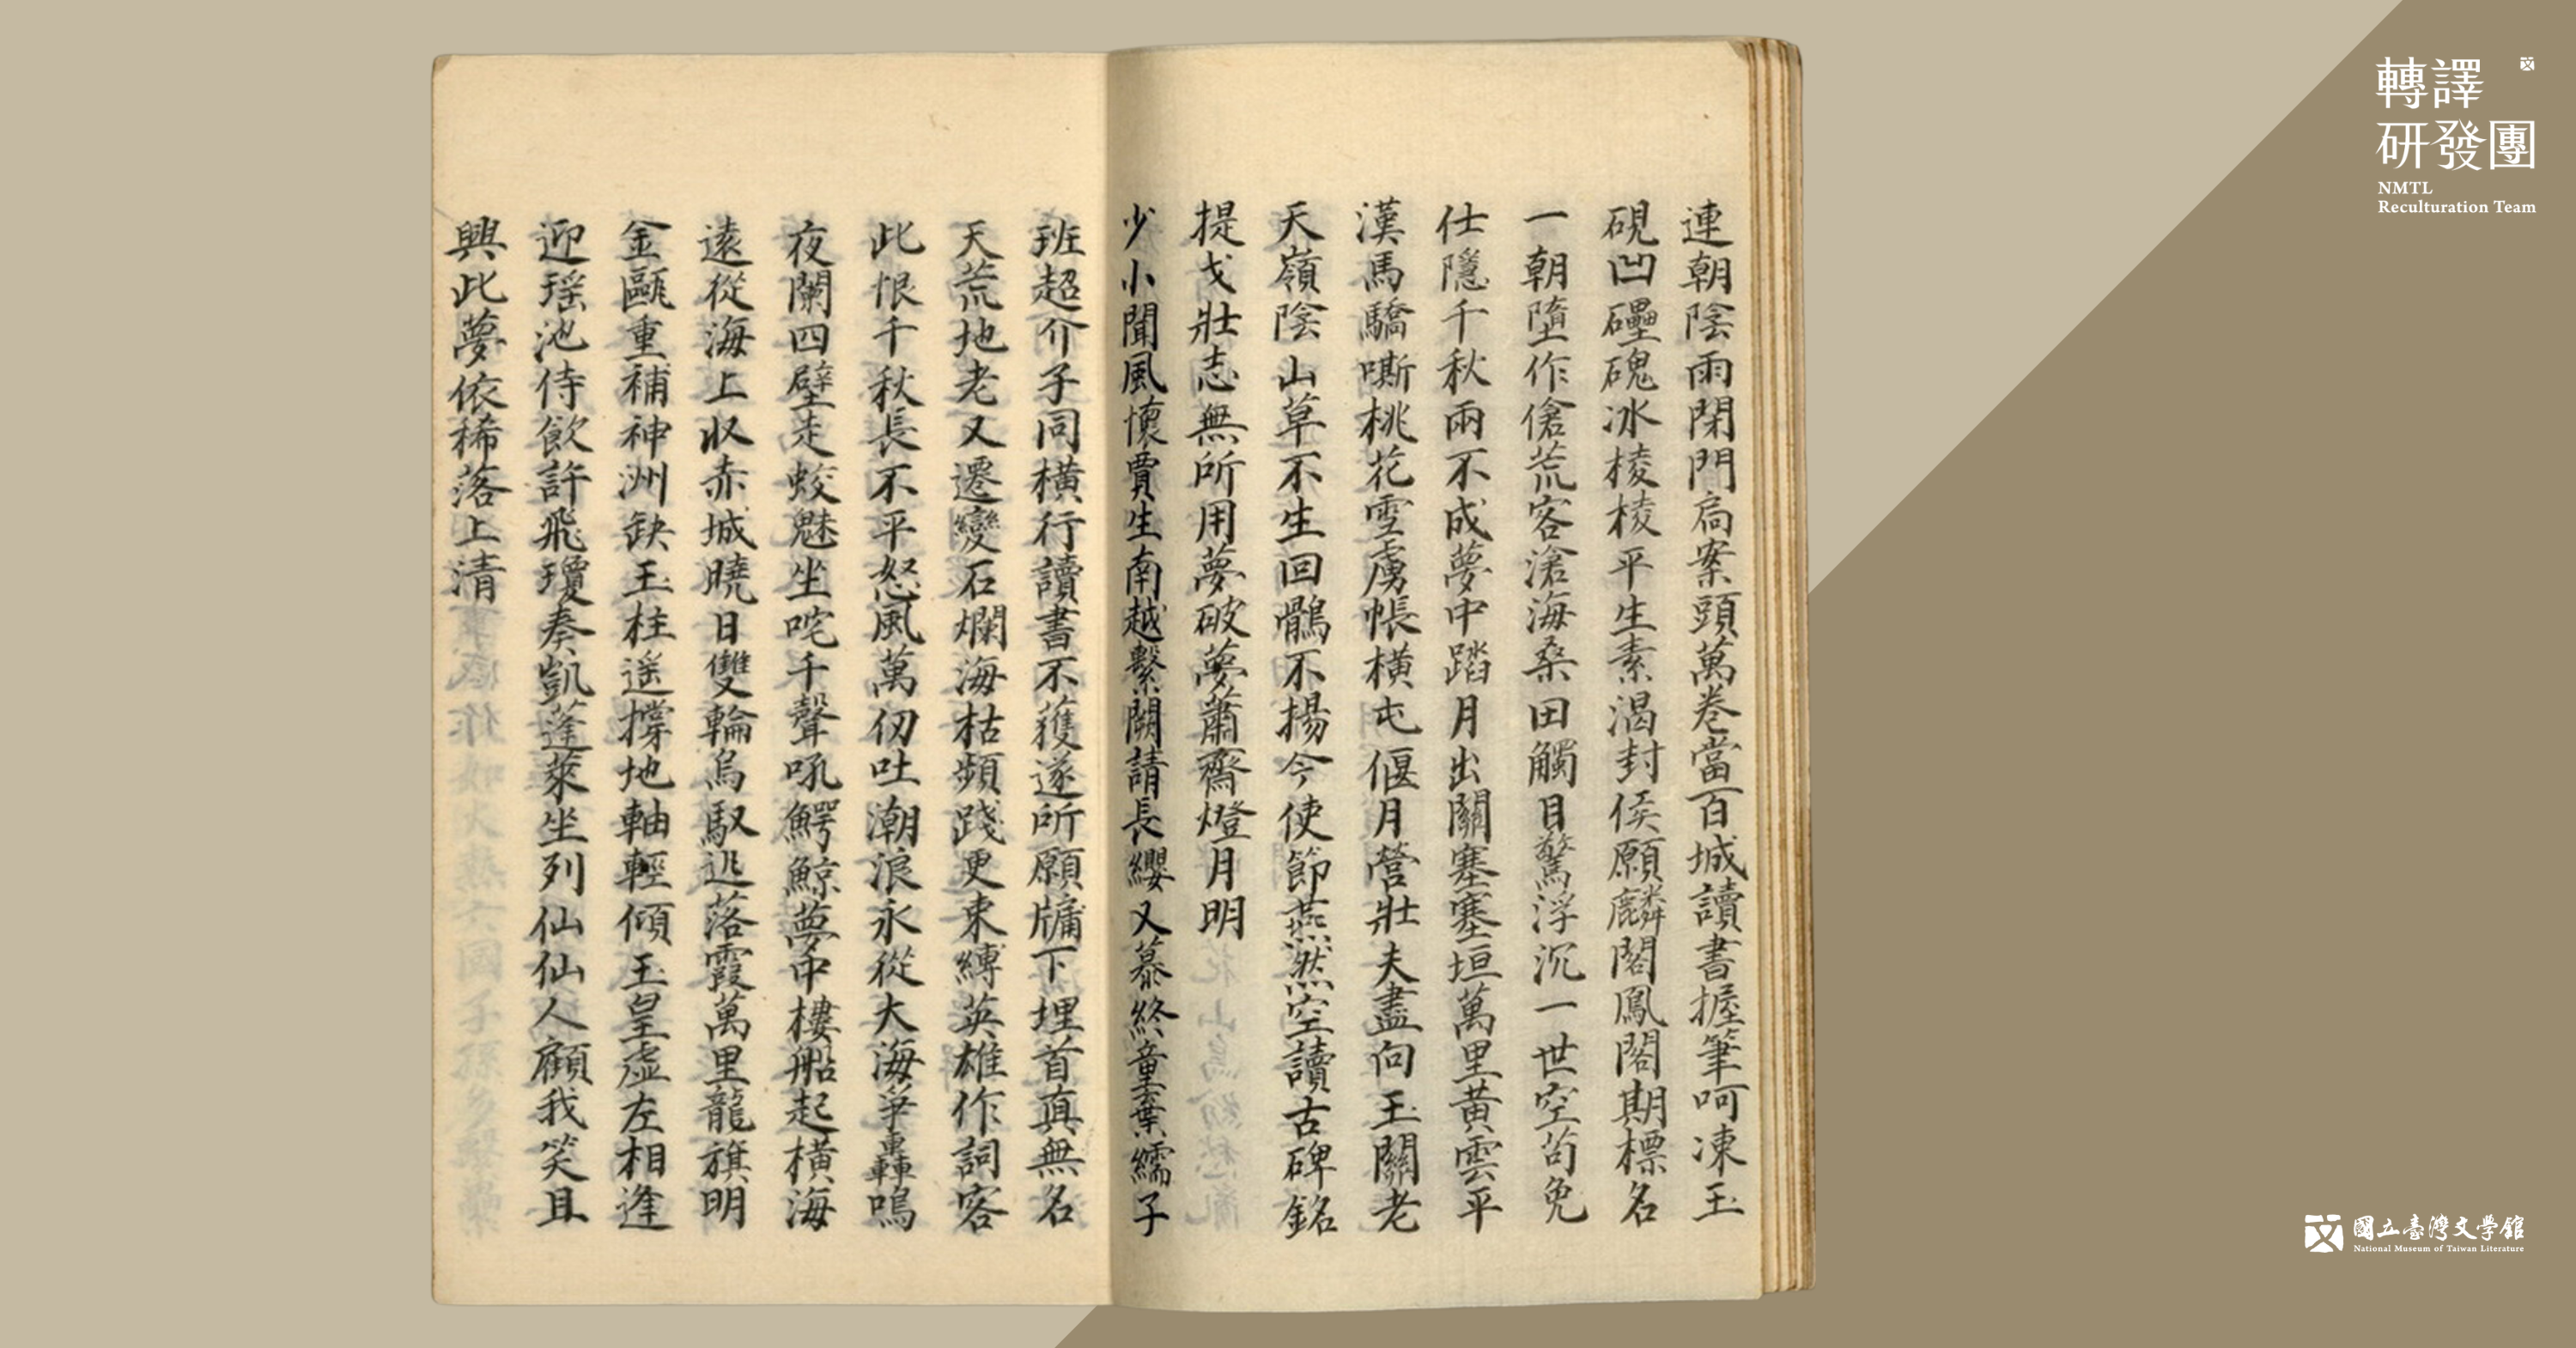 連朝陰雨閉門扃案頭萬卷當百城讀書握筆呵凍玉
硯凹礧磈冰棱棱平生素渴封侯願麟閣鳳閣期標名
一朝墮作傖荒客滄海桑田觸目驚浮沉一世空苟免
仕隱千秋兩不成夢中踏月出關塞塞垣萬里黃雲平
漢馬驕嘶桃花雪虜帳橫屯偃月營壯夫盡向玉關老
天嶺陰山草不生回鶻不揚今使節燕然空讀古碑銘
提戈壯志無所用夢破夢蕭齋燈月明
少小聞風懷賈生南越繫闕請長纓又慕終童棄繻子
班超介子同橫行讀書不獲遂所願牖下埋首真無名
天荒地老又遷變石爛海枯頻踐更束縛英雄作詞客
此恨千秋長不平怒風萬仞吐潮浪永從大海爭轟鳴
夜闌四壁走蛟魅坐咤千聲吼鱷鯨夢中樓船起橫海
遠從海上収赤城曉日雙輪烏馭迅落霞萬里龍旗明
金甌重補神洲缺玉柱遥撐地軸輕傾玉皇虛左相逢
迎瑶池侍飲許飛瓊奏凱蓬萊坐列仙仙人顧我笑且
興此夢依稀落上清
轉譯
研發團
NMTL
Reculturation Team
國立臺灣文學館
National Museum of Taiwan Literature